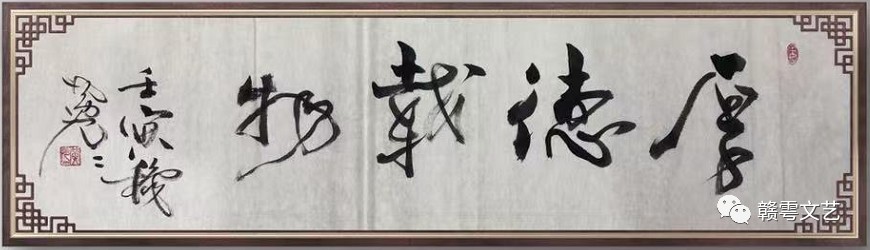 厚德载物
壬寅秋
赣雩文艺